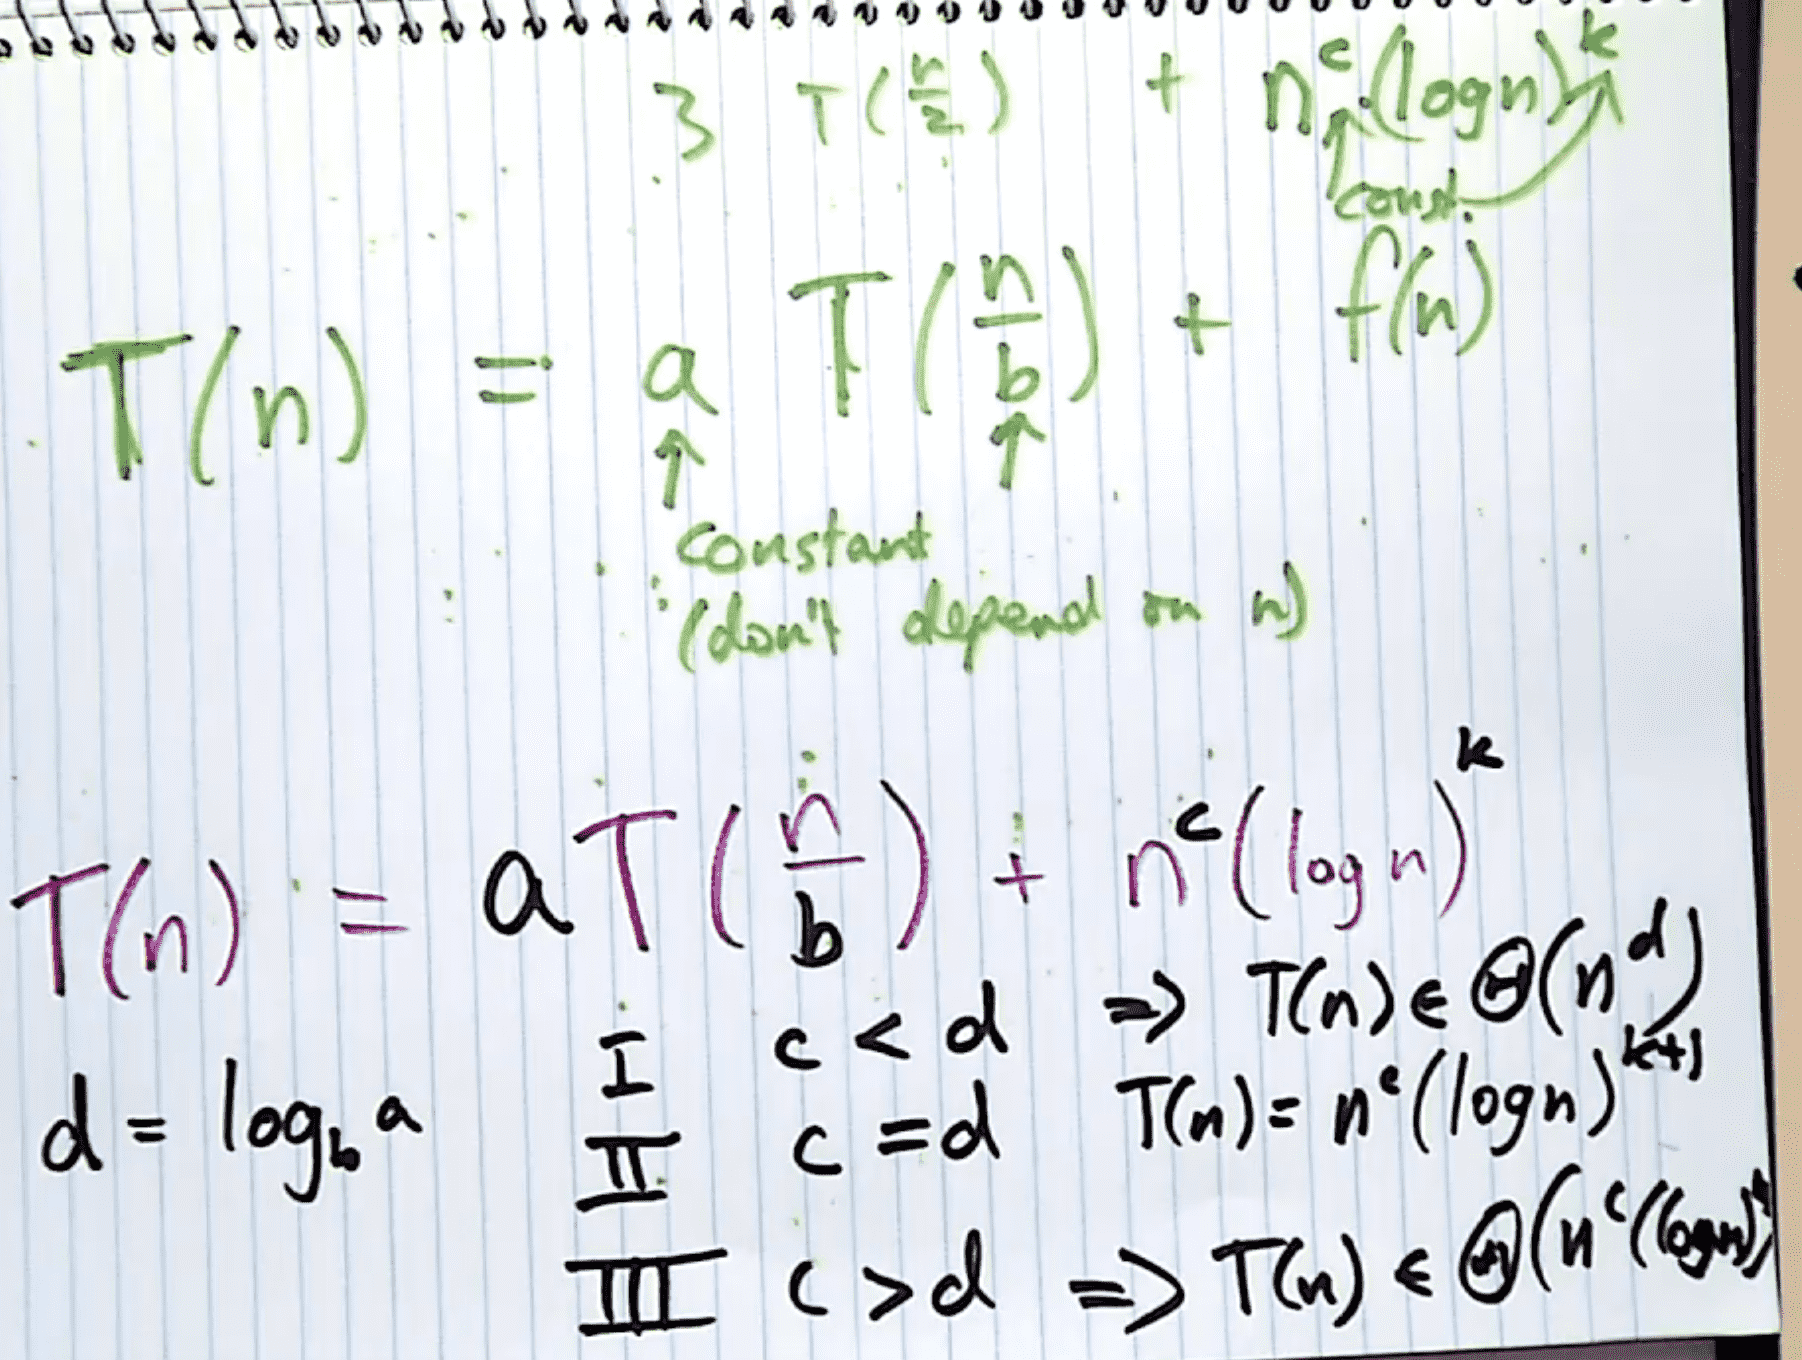 3 T(n/2) + n^c (log n)^k
const.
T(n) = a T(n/b) + f(n)
constant
(don't depend on n)
T(n) = a T(n/b) + n^c (log n)^k
I c < d => T(n) ∈ Θ(n^d)
d = log_b a
II c = d T(n) = n^c (log n)^k+1
III c > d => T(n) ∈ Θ(n^c (log n)^k